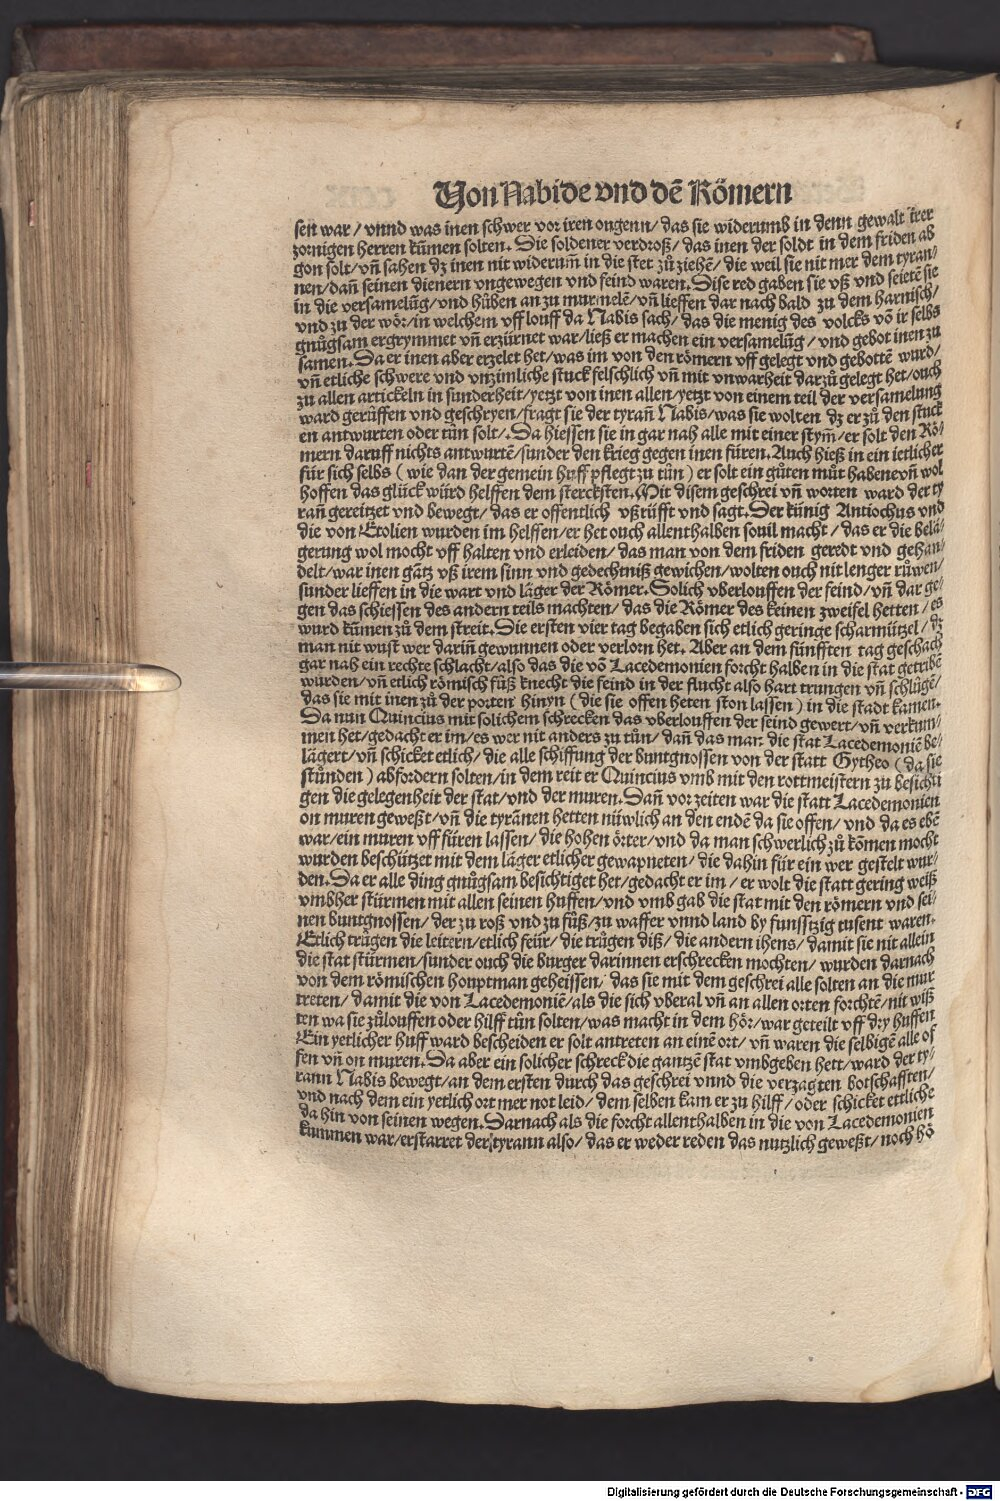 Von Nabide vnd dē Römern
sen war / vnnd was inen schwer vor iren ougenn / das sie widerumb in denn gewalt irer
zornigen herren kūmen solten. Die soldener verdroß / das inen der soldt in dem friden ab
gon solt / vñ sahen dz inen nit widerum̄ in die stet zů ziehē / die weil sie nit mer dem tyran-
nen / dañ seinen dienern vngewegen vnd feind waren. Dise red gaben sie vß vnd seietē sie
in die versamelūg / vnd hůben an zu murmelē / vñ lieffen dar nach bald zu dem harnisch /
vnd zu der wör / in welchem vff louff da Nabis sach / das die menig des volcks vō ir selbs
gnůgsam ergrymmet vñ erzürnet war / ließ er machen ein versamelūg / vnd gebot inen zu
samen. Da er inen aber erzelet het / was im von den römern vff gelegt vnd gebottē wurd /
vñ etliche schwere vnd vnzimliche stuck felschlich vñ mit vnwarheit darzů gelegt het / ouch
zu allen artickeln in sunderheit / yetzt von inen allen / yetzt von einem teil der versamelung
ward gerüffen vnd geschryen / fragt sie der tyrañ Nabis / was sie wolten dz er zů den stuck
en antwurten oder tůn solt /. Da hiessen sie in gar nah alle mit einer stym̄ / er solt den Rö-
mern daruff nichts antwurtē / sunder den krieg gegen inen füren. Auch hieß in ein ietlicher
für sich selbs ( wie dan der gemein huff pflegt zu tůn ) er solt ein gůten můt haben vñ wol
hoffen das glück würd helffen dem stercksten. Mit disem geschrei vñ worten ward der ty
rañ gereitzet vnd bewegt / das er offentlich vßrüfft vnd sagt. Der künig Antiochus vnd
die von Etolien wurden im helffen / er het ouch allenthalben souil macht / das er die belä-
gerung wol mocht vff halten vnd erleiden / das man von dem friden geredt vnd gehan-
delt / war inen gātz vß irem sinn vnd gedechtniß gewichen / wolten ouch nit lenger růwen /
sunder lieffen in die wart vnd läger der Römer. Solich vberlouffen der feind / vñ dar ge-
gen das schiessen des andern teils machten / das die Römer des keinen zweifel hetten / es
wurd kūmen zů dem streit. Die ersten vier tag begaben sich etlich geringe scharmützel / dz
man nit wust wer dariñ gewunnen oder verlorn het. Aber an dem fünfften tag geschach
gar nah ein rechte schlacht / also das die vō Lacedemonien forcht halben in die stat getribē
wurden / vñ etlich römisch fůß knecht die feind in der flucht also hart trungen vñ schlůgē /
das sie mit inen zů der porten hinyn ( die sie offen heten ston lassen ) in die stadt kamen.
Da nun Quincius mit solichem schrecken das vberlouffen der feind gewert / vñ verkum-
men het / gedacht er im / es wer nit anders zu tůn / dañ das man die stat Lacedemoniē be-
lägert / vñ schicket etlich / die alle schiffung der buntgnossen von der statt Gytheo ( da sie
stůnden ) abfordern solten / in dem reit er Quincius vmb mit den rottmeistern zu besichti
gen die gelegenheit der stat / vnd der muren. Dañ vor zeiten war die statt Lacedemonien
on muren geweßt / vñ die tyrānen hetten nüwlich an den endē da sie offen / vnd da es ebē
war / ein muren vff füren lassen / die hohen örter / vnd da man schwerlich zů kōmen mocht
wurden beschützet mit dem läger etlicher gewapneten / die dahin für ein wer gestelt wur-
den. Da er alle ding gnůgsam besichtiget het / gedacht er im / er wolt die statt gering weiß
vmbher stürmen mit allen seinen huffen / vnd vmb gab die stat mit den römern vnd sei-
nen buntgnossen / der zu roß vnd zu fůß / zu wasser vnnd land by funfftzig tusent waren.
Etlich trůgen die leitern / etlich feür / die trůgen diß / die andern ihens / damit sie nit allein
die stat stürmen / sunder ouch die burger darinnen erschrecken mochten / wurden darnach
von dem römischen houptman geheissen / das sie mit dem geschrei alle solten an die mur
tretten / damit die von Lacedemoniē / als die sich vberal vñ an allen orten forchtē / nit wiß
ten wa sie zůlouffen oder hilff tůn solten / was macht in dem hör / war geteilt vff dry huffen
Ein yetlicher huff ward bescheiden er solt antreten an einē ort / vñ waren die selbigē alle of
fen vñ on muren. Da aber ein solicher schreck die gantzē stat vmbgeben hett / ward der ty-
rann Nabis bewegt / an dem ersten durch das geschrei vnnd die verzagten botschafften /
vnd nach dem ein yetlich ort mer not leid / dem selben kam er zu hilff / oder schicket ettliche
da hin von seinen wegen. Darnach als die forcht allenthalben in die von Lacedemonien
kummen war / erstarret der tyrann also / das er weder reden das nutzlich geweßt / noch hö
Digitalisierung gefördert durch die Deutsche Forschungsgemeinschaft - DFG